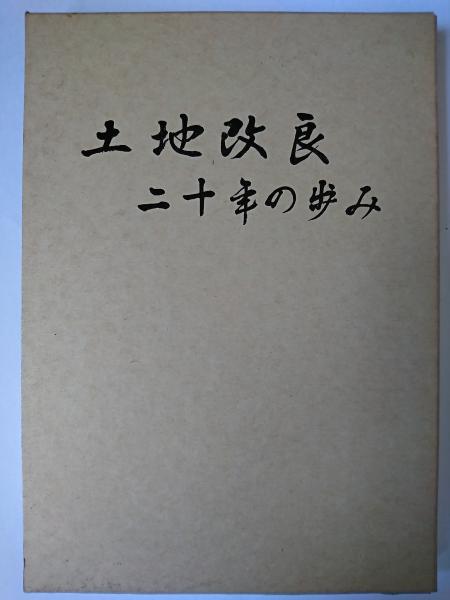 土地改良
二十年の歩み